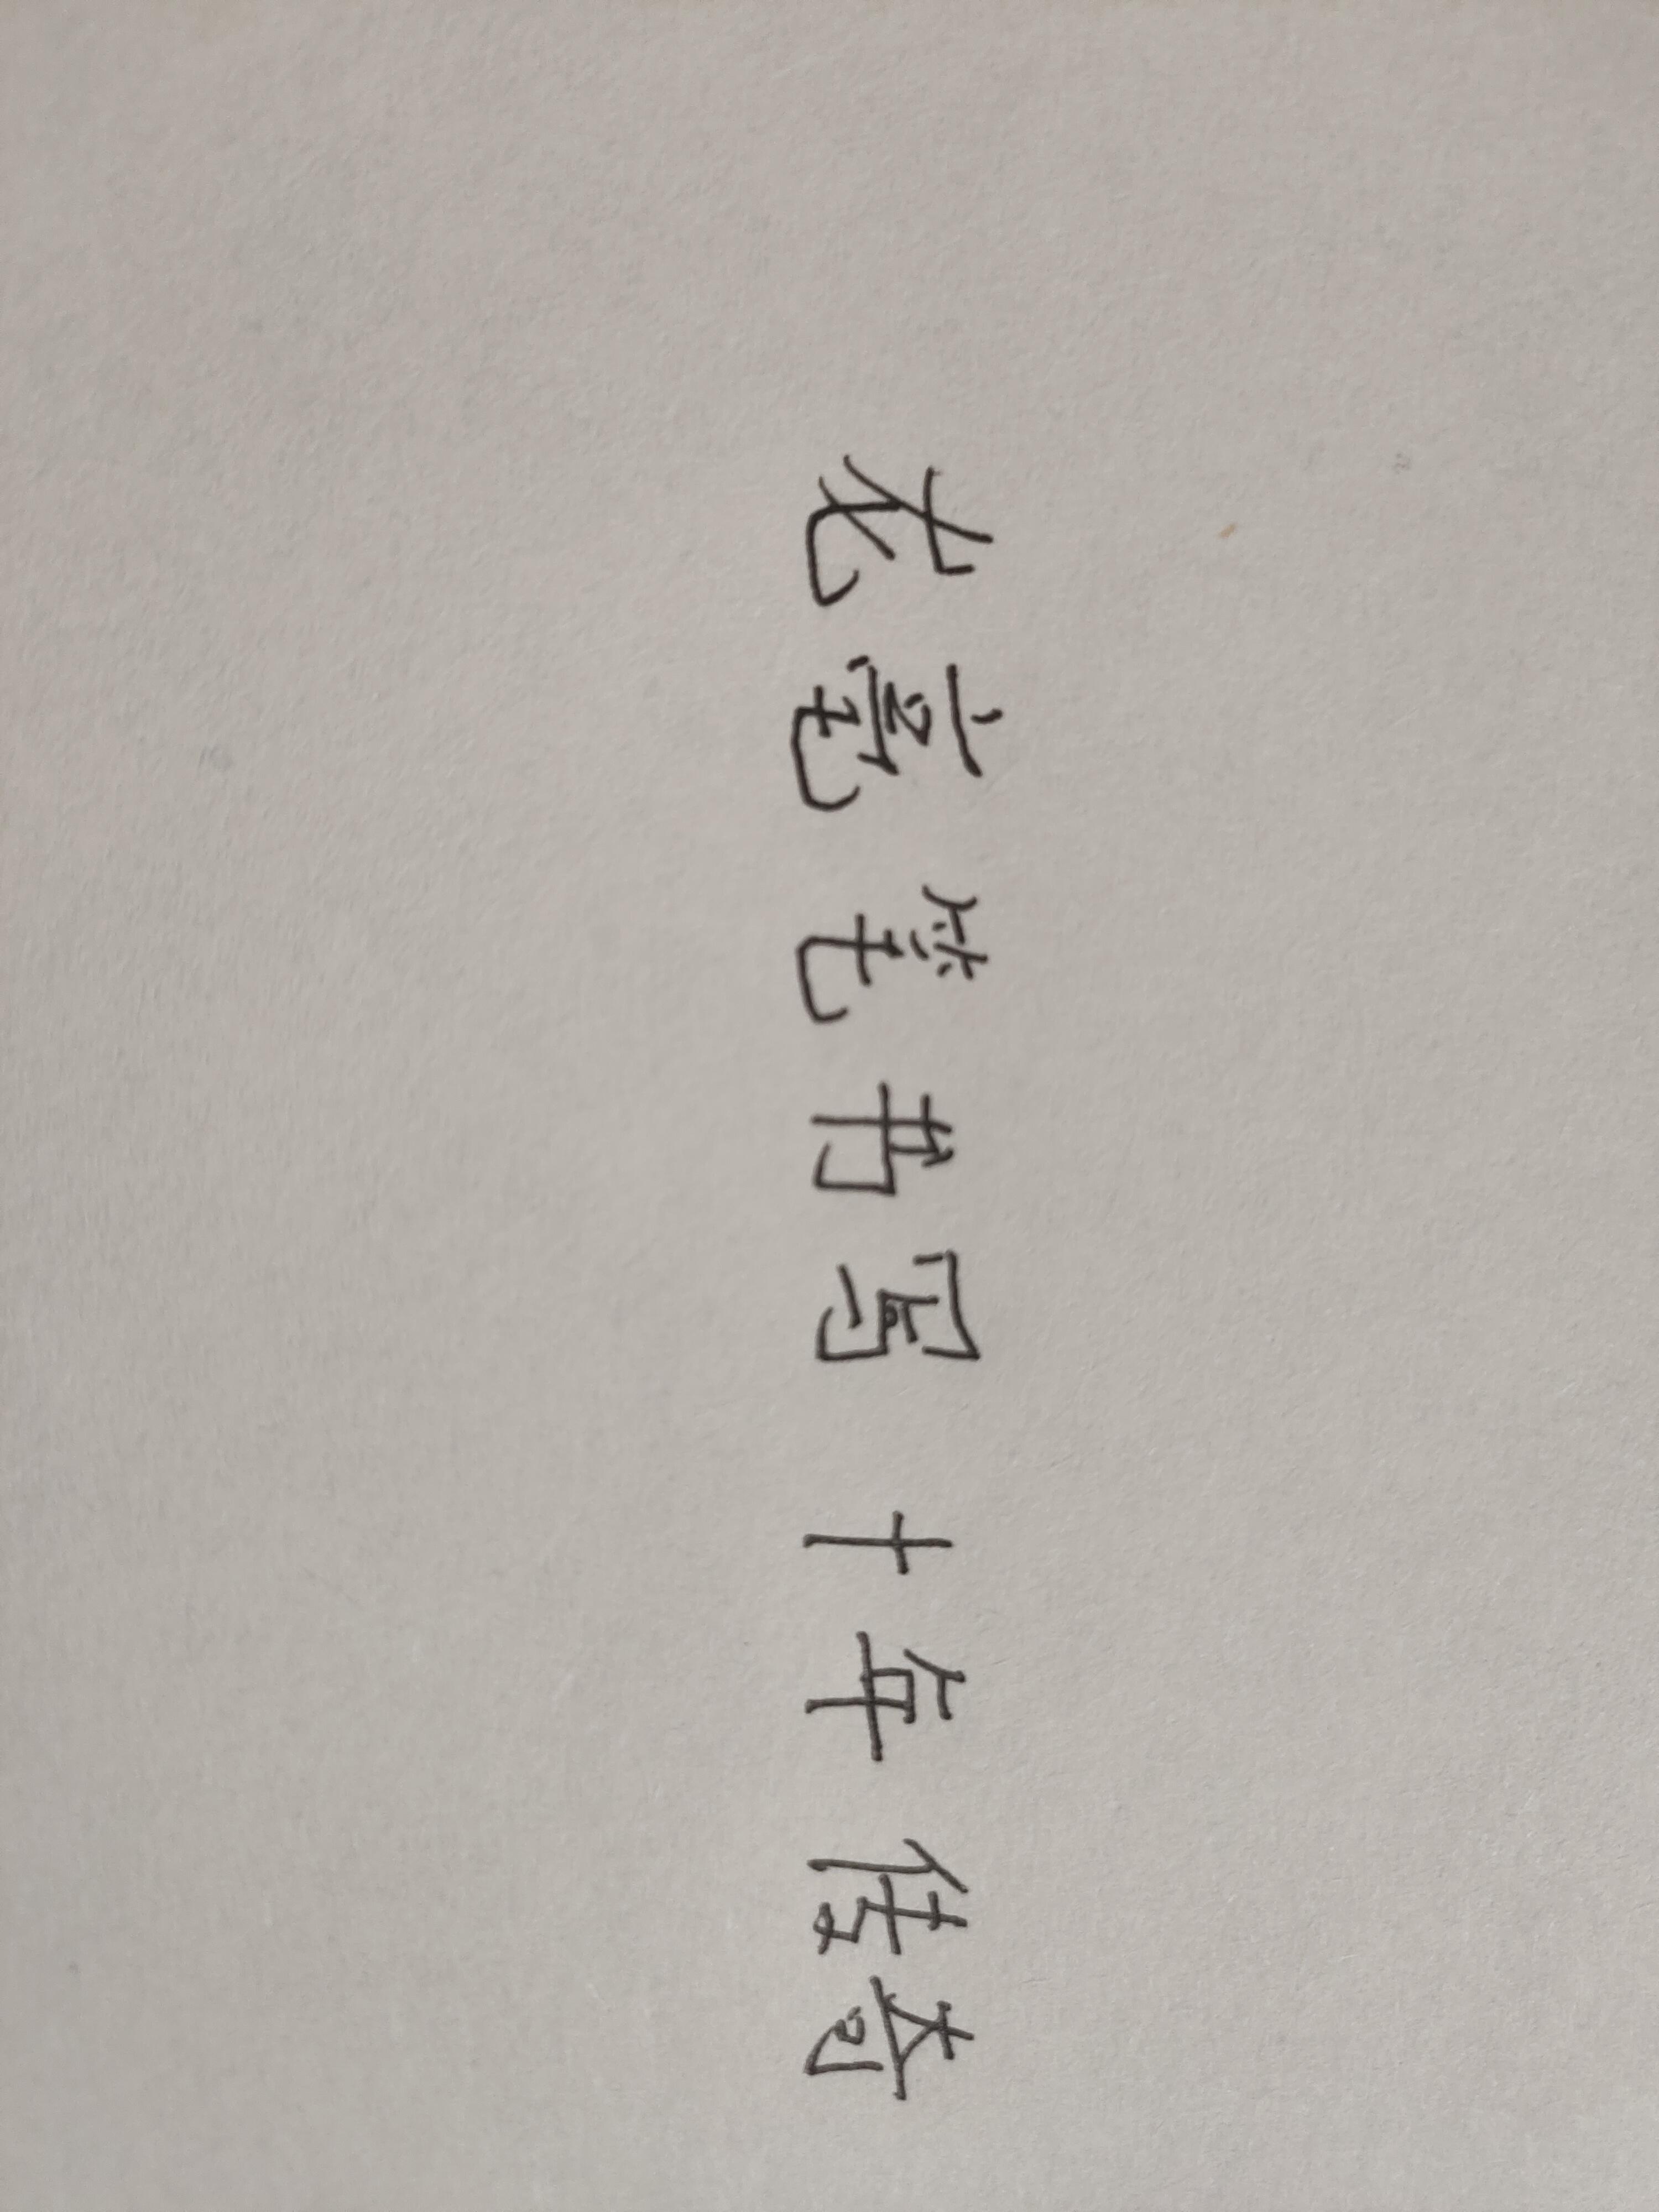 龙毫笔书写 十年传奇